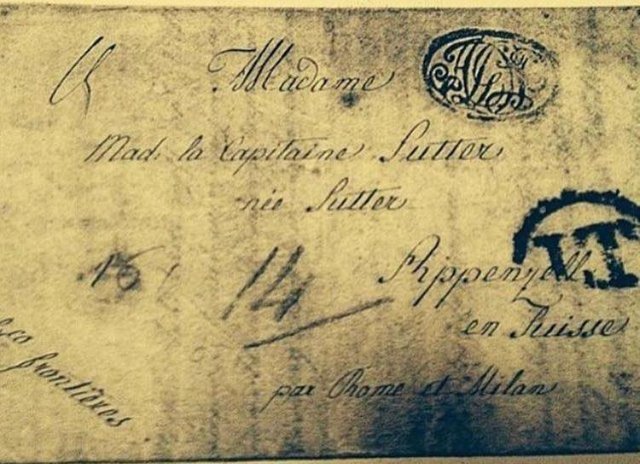 Madame
Mad. la Capitaine Sutter
née Sutter
Appenzell
en Suisse
par Rome et Milan
15
14
frontières